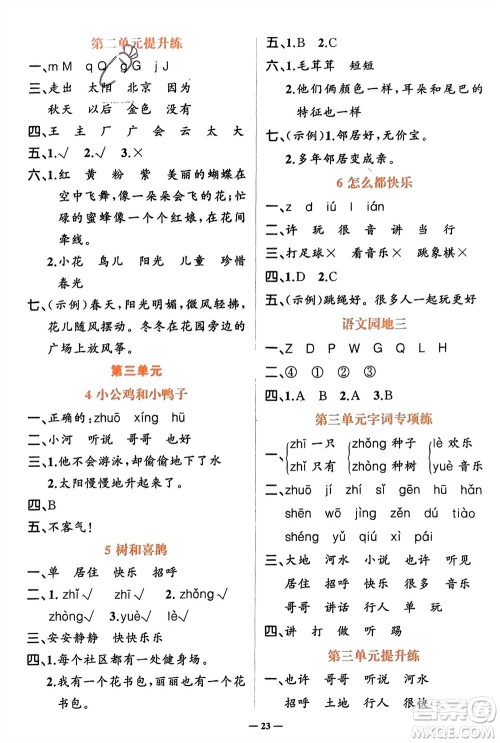 第二单元提升练
一、m M q Q g G j J
三、走出 太阳 北京 因为
秋天 以后 金色 没有
四、王 主 厂 广 会 云 太 大
五、1.√ 2.√ 3.×
六、1.红 黄 粉 紫 美丽的蝴蝶在
空中飞舞,像一朵会飞的花;忙
碌的蜜蜂像一个红娘,在花间
牵线。
2.小花 鸟儿 阳光 儿童 珍惜
春光
七、(示例)春天,阳光明媚,微风轻拂,
花儿随风摆动。冬冬在花园旁边的
广场上放风筝。
第三单元
4 小公鸡和小鸭子
一、正确的:zhuō xíng hū
二、小河 听说 哥哥 也许
三、1.他不会游泳,却偷偷地下了水
2.太阳慢慢地升起来了
四、B
五、不客气!
5 树和喜鹊
一、单 居住 快乐 招呼
二、1.zhāo√ zhù√ 2.zhǒng√
zhòng√ 3.yuè√ lè√
三、安安静静 快快乐乐
四、1.每个社区都有一处健身场。
2.我有一个花书包。美丽有一个
花书包。
五、1.B 2.A
六、1.毛茸茸 短短
2.他们俩颜色一样,耳朵和尾巴的
特征也一样。
七、(示例)1.邻居好,无价宝。
2.多年邻居变成亲。
6 怎么都快乐
一、z d iú l ián
二、许 玩 很 音 讲 当 行
三、打足球× 看音乐× 跳象棋×
四、1.D 2.C
五、(示例)跳绳好。好很好,很多人
可以一起玩。
语文园地三
一、Z D P W G Q L H
二、④ ① ① ①
四、1.A A B
第三单元字词专项练
一、zhī 一只 zhǒng 种子 lè 欢乐
zhǐ 只有 zhòng 种树 yuè 音乐
二、zhuō zhí zhāi gēn hū
dān zhù zhāo yīn qiú
shéo yǔ xǔ qì kuài
三、大地 河水 小说 也许 听见
居住 招呼 快乐 很好 音乐
哥哥 讲话 行人 单 玩
四、讲 打 做 听 踢
第三单元提升练
一、也许 哥哥 听说 河水
招呼 土地 行人 很快
23